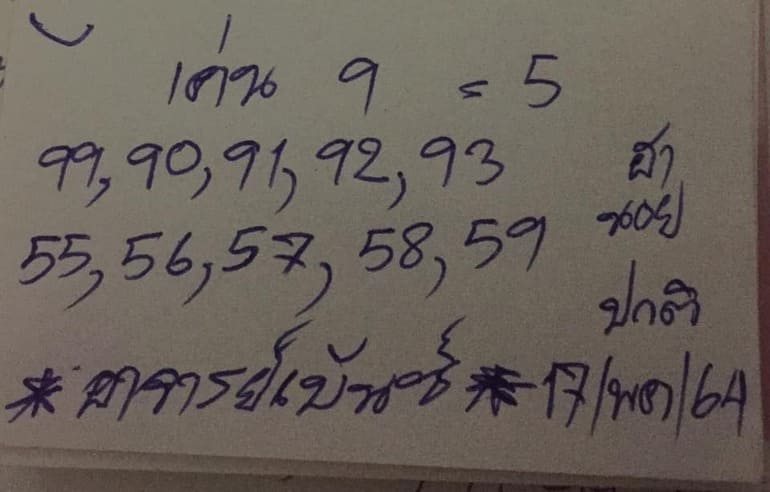 เด่น 9 = 5
99, 90, 91, 92, 93
55, 56, 57, 58, 59
ฮา
นอย
ปกติ
* อาจารย์เบ้นซ์ * 17/พค/64